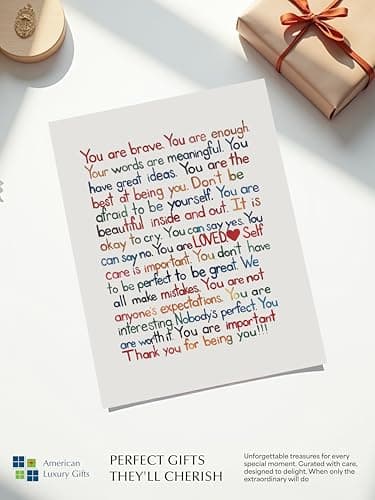 You are brave. You are enough.
Your words are meaningful. You
have great ideas. You are the
best at being you. Don't be
afraid to be yourself. You are
beautiful inside and out. It is
okay to cry. You can say yes. You
can say no. You are LOVED Self
care is important. You don't have
to be perfect to be great. We
all make mistakes. You are not
anyone's expectations. You are
interesting. Nobody's perfect. You
are worth it. You are important
Thank you for being you!!!
American
Luxury Gifts
PERFECT GIFTS
THEY'LL CHERISH
Unforgettable treasures for every
special moment. Curated with care,
designed to delight. When only the
extraordinary will do